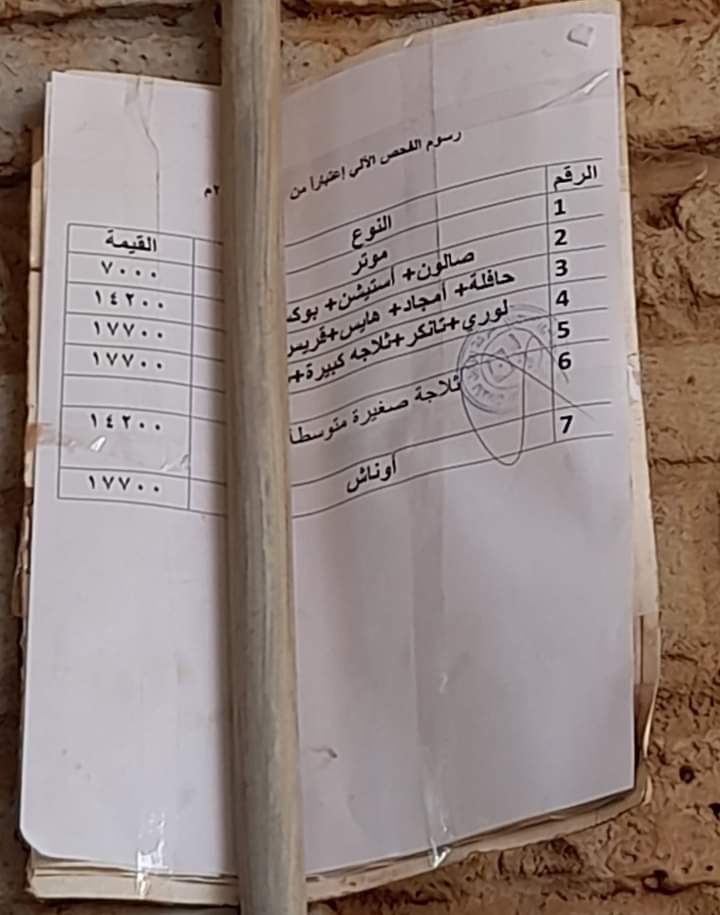 رسوم الفحص الآلي إعتباراً من م
الرقم النوع القيمة
1 موتر ٧٠٠٠
2 صالون+ أستيشن+ ١٤٢٠٠
3 حافلة+ أمجاد+ هايس+ ١٧٧٠٠
4 لوري+تانكر+ثلاجه كبيرة+ ١٧٧٠٠
5
6 ثلاجة صغيرة ١٤٢٠٠
7 أوناش ١٧٧٠٠